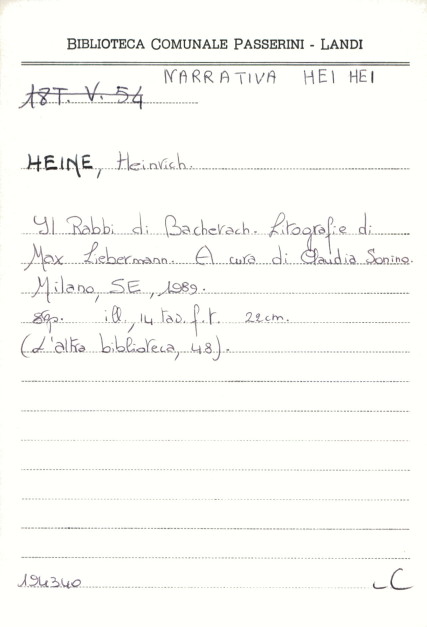 BIBLIOTECA COMUNALE PASSERINI - LANDI
NARRATIVA HEI HEI
18T. V. 54
HEINE, Heinrich.
Il Rabbi di Bacherach. Litografie di
Max Liebermann. A cura di Claudia Sonino.
Milano, SE, 1989.
89p. ill., 14 tav. f.t. 22cm.
(L'altra biblioteca, 48).
194340 C